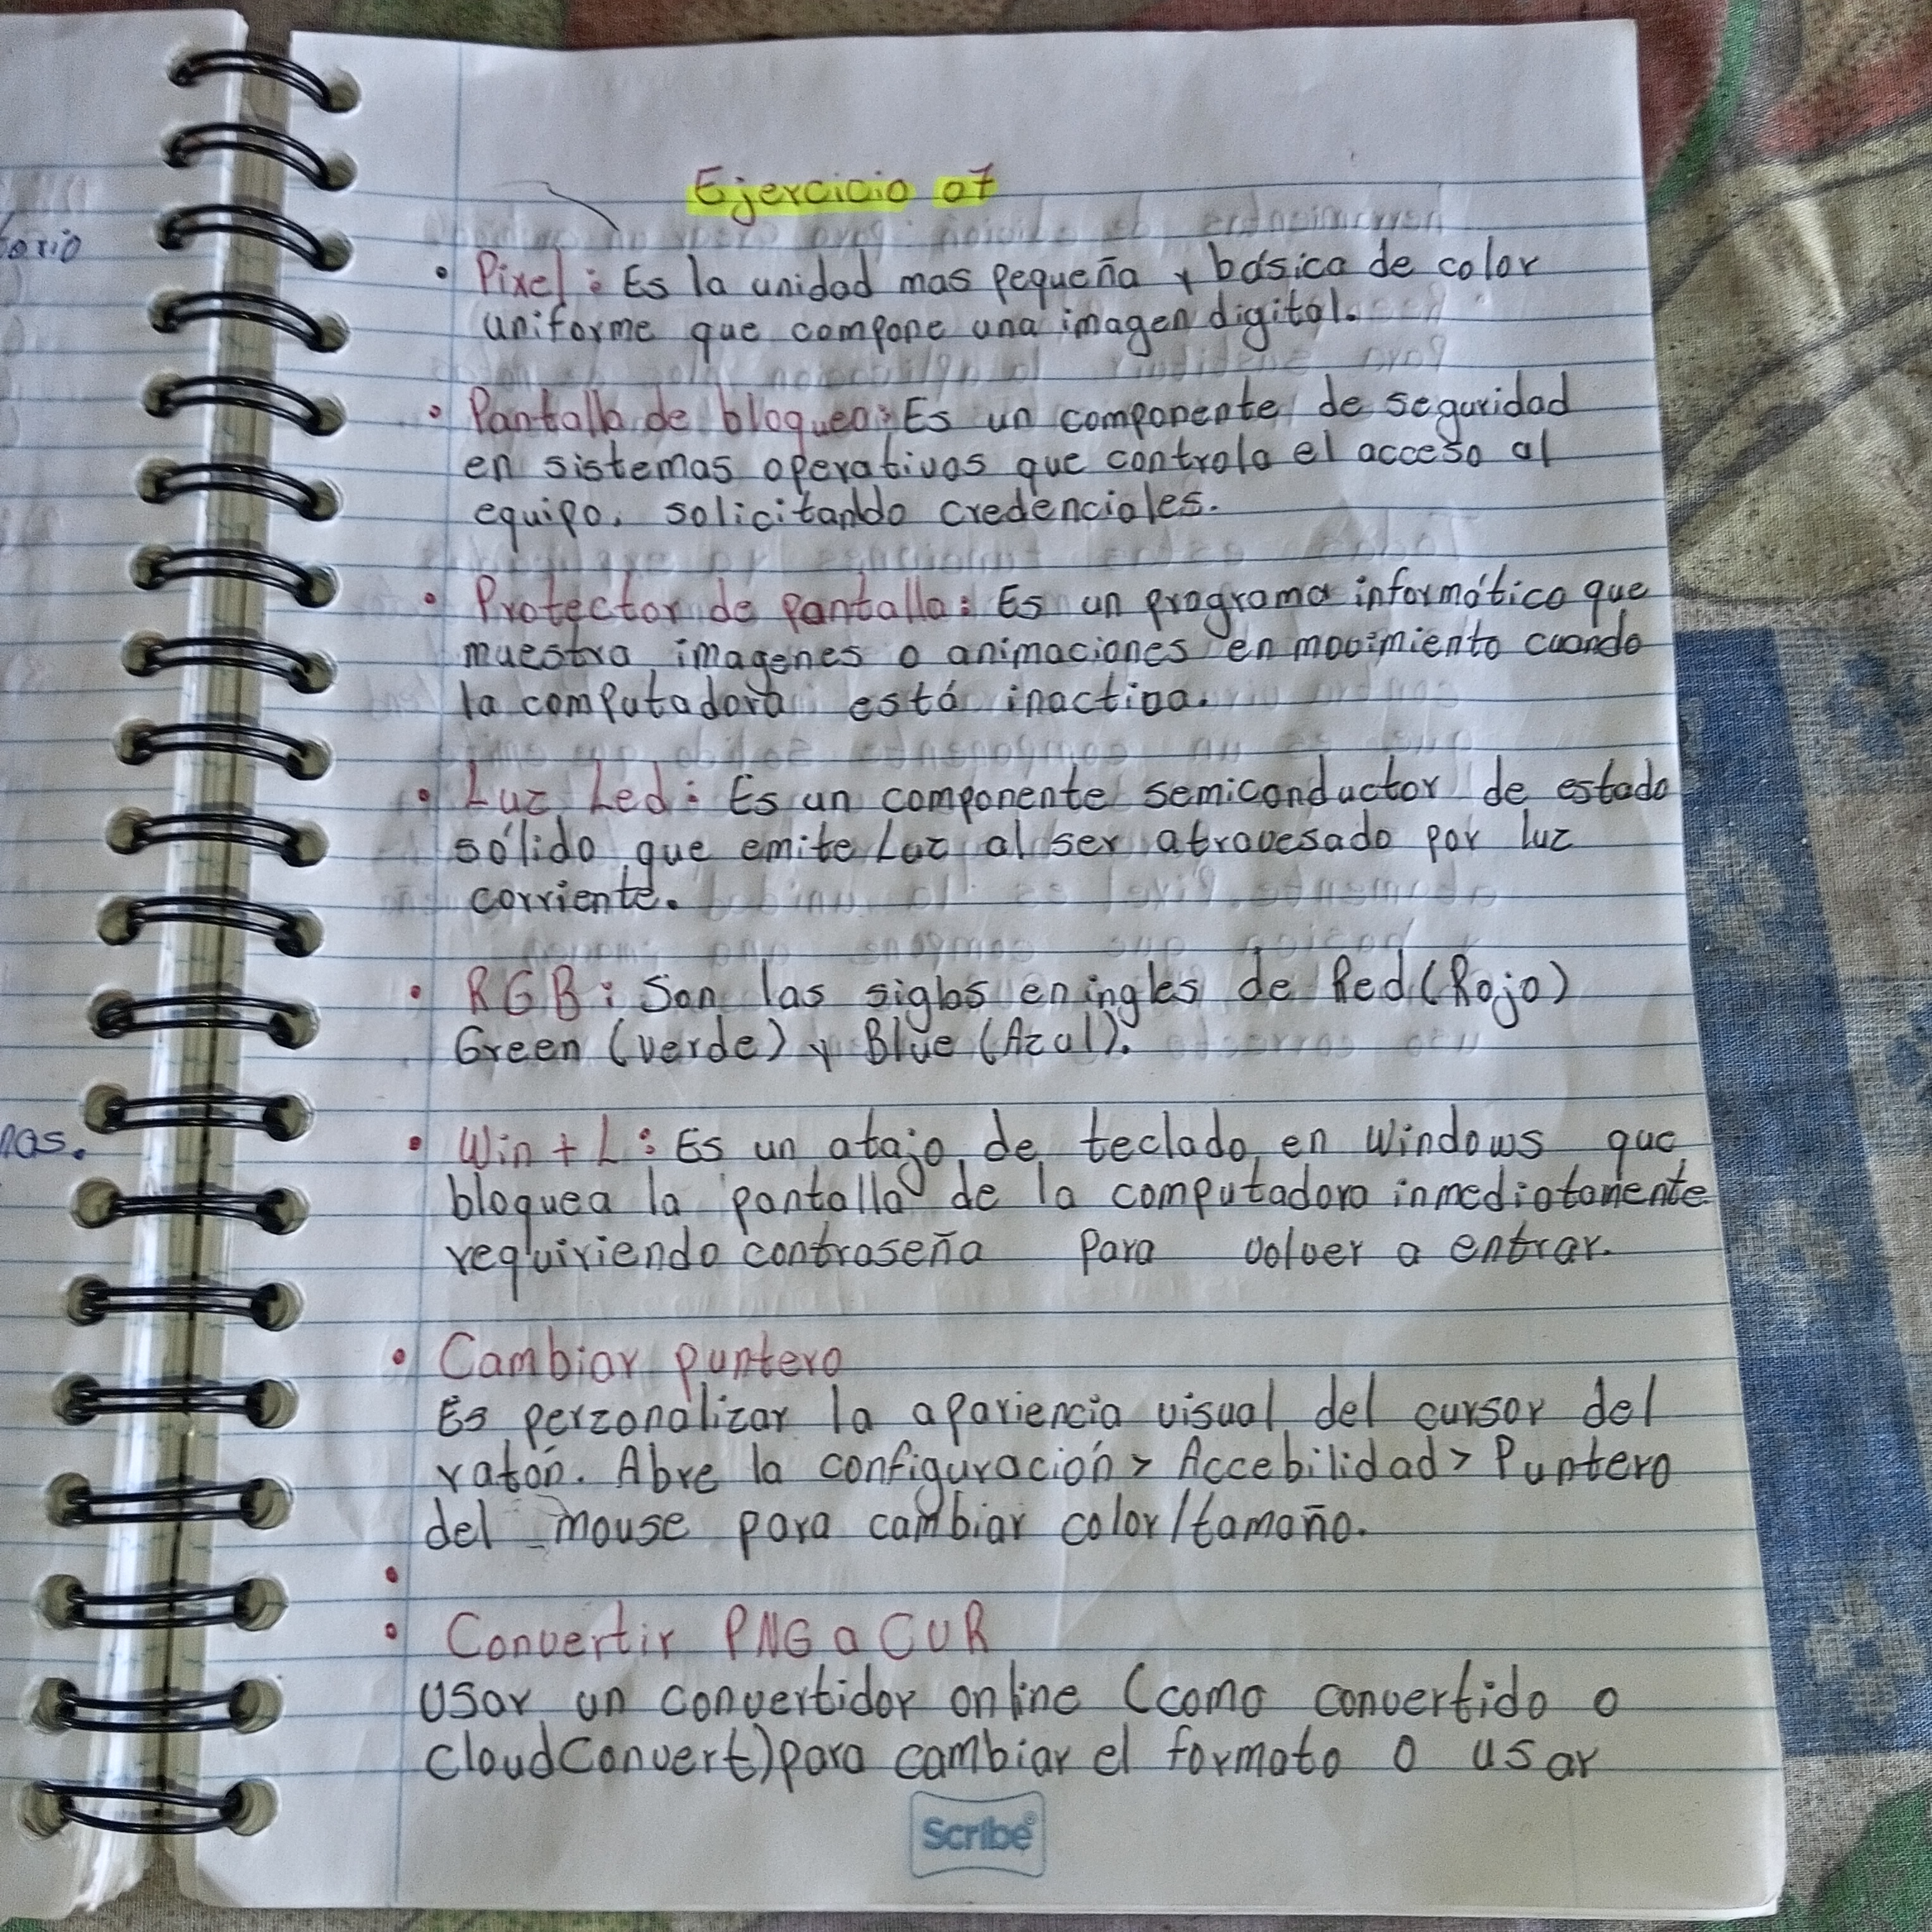 Ejercicio 07
• Pixel: Es la unidad mas pequeña y básica de color
uniforme que compone una imagen digital.
• Pantalla de bloqueo: Es un componente de seguridad
en sistemas operativos que controla el acceso al
equipo, solicitando credenciales.
• Protector de pantalla: Es un programa informático que
muestra imagenes o animaciones en movimiento cuando
la computadora está inactiva.
• Luz Led: Es un componente semiconductor de estado
sólido que emite Luz al ser atravesado por luz
corriente.
• RGB: Son las siglas en ingles de Red (Rojo)
Green (verde) y Blue (Azul).
• Win + L: Es un atajo de teclado en Windows que
bloquea la pantalla de la computadora inmediatamente
requiriendo contraseña para volver a entrar.
• Cambiar puntero
Es perzonalizar la apariencia visual del cursor del
ratón. Abre la configuración > Accebilidad > Puntero
del mouse para cambiar color/tamaño.
•
• Convertir PNG a CUR
Usar un convertidor online (como convertido o
CloudConvert) para cambiar el formato o usar
Scribe®
torio
nas.